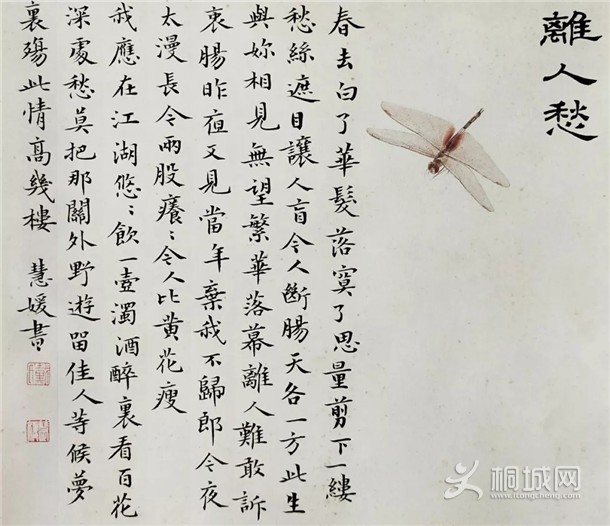 離人愁
春去白了華髮落寞了思量剪下一縷
愁絲遮目讓人盲令人斷腸天各一方此生
與妳相見無望繁華落幕離人難敢訴
衷腸昨亱又見當年棄我不歸郎今夜
太漫長令兩股癢〻令人比黄花瘦
我應在江湖悠〻飲一壺濁酒醉裏看百花
深處愁莫把那關外野遊留佳人等候夢
裏殤此情高幾樓 慧媛書
桐城网
www.itongcheng.com